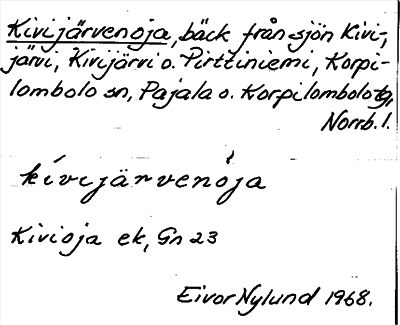 Kivijärvenoja, bäck från sjön Kivi-
järvi, Kivijärvi o. Pirttiniemi, Korpi-
lombolo sn, Pajala o. Korpilombolo tg,
Norrb. l.
kívijärvenòja
Kivioja ek, Gn 23
Eivor Nylund 1968.